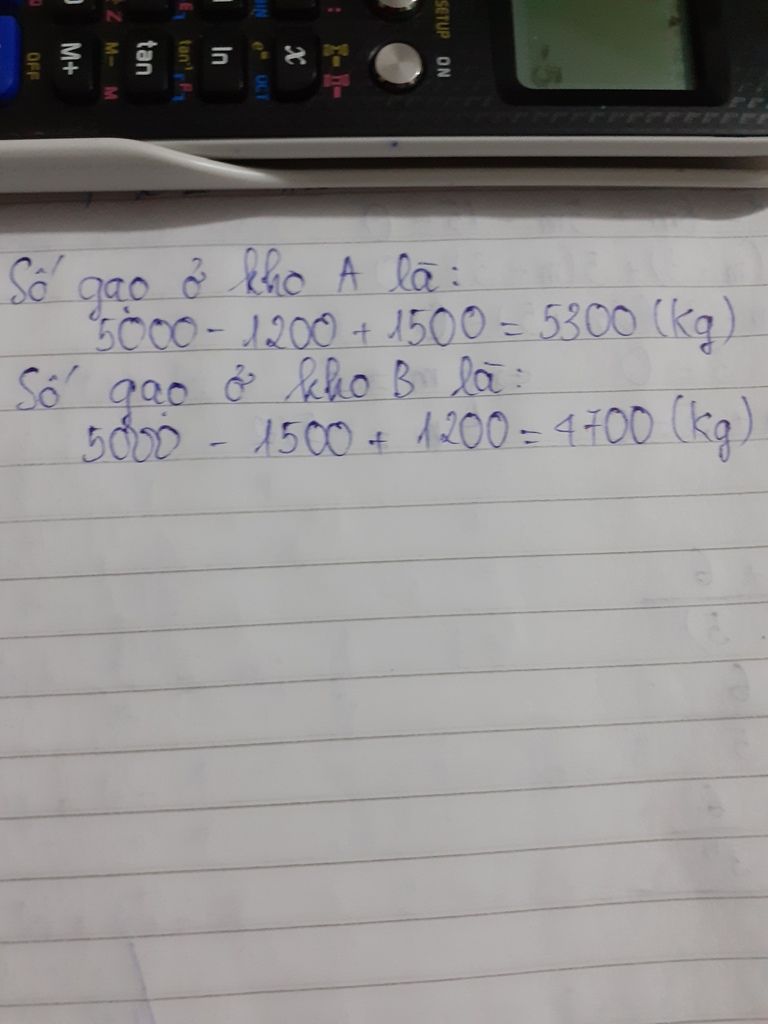 SETUP
ON
x
ln
tan
M+
eˣ
tan⁻¹
M-
M
OFF
Số gạo ở kho A là:
5000 - 1200 + 1500 = 5300 (kg)
Số gạo ở kho B là:
5000 - 1500 + 1200 = 4700 (kg)